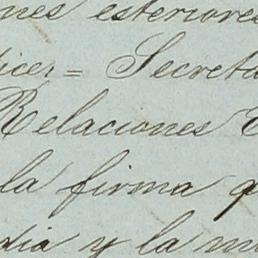 nes esteriores
dicer= Secreta
Relaciones E
la firma q
dia y la m